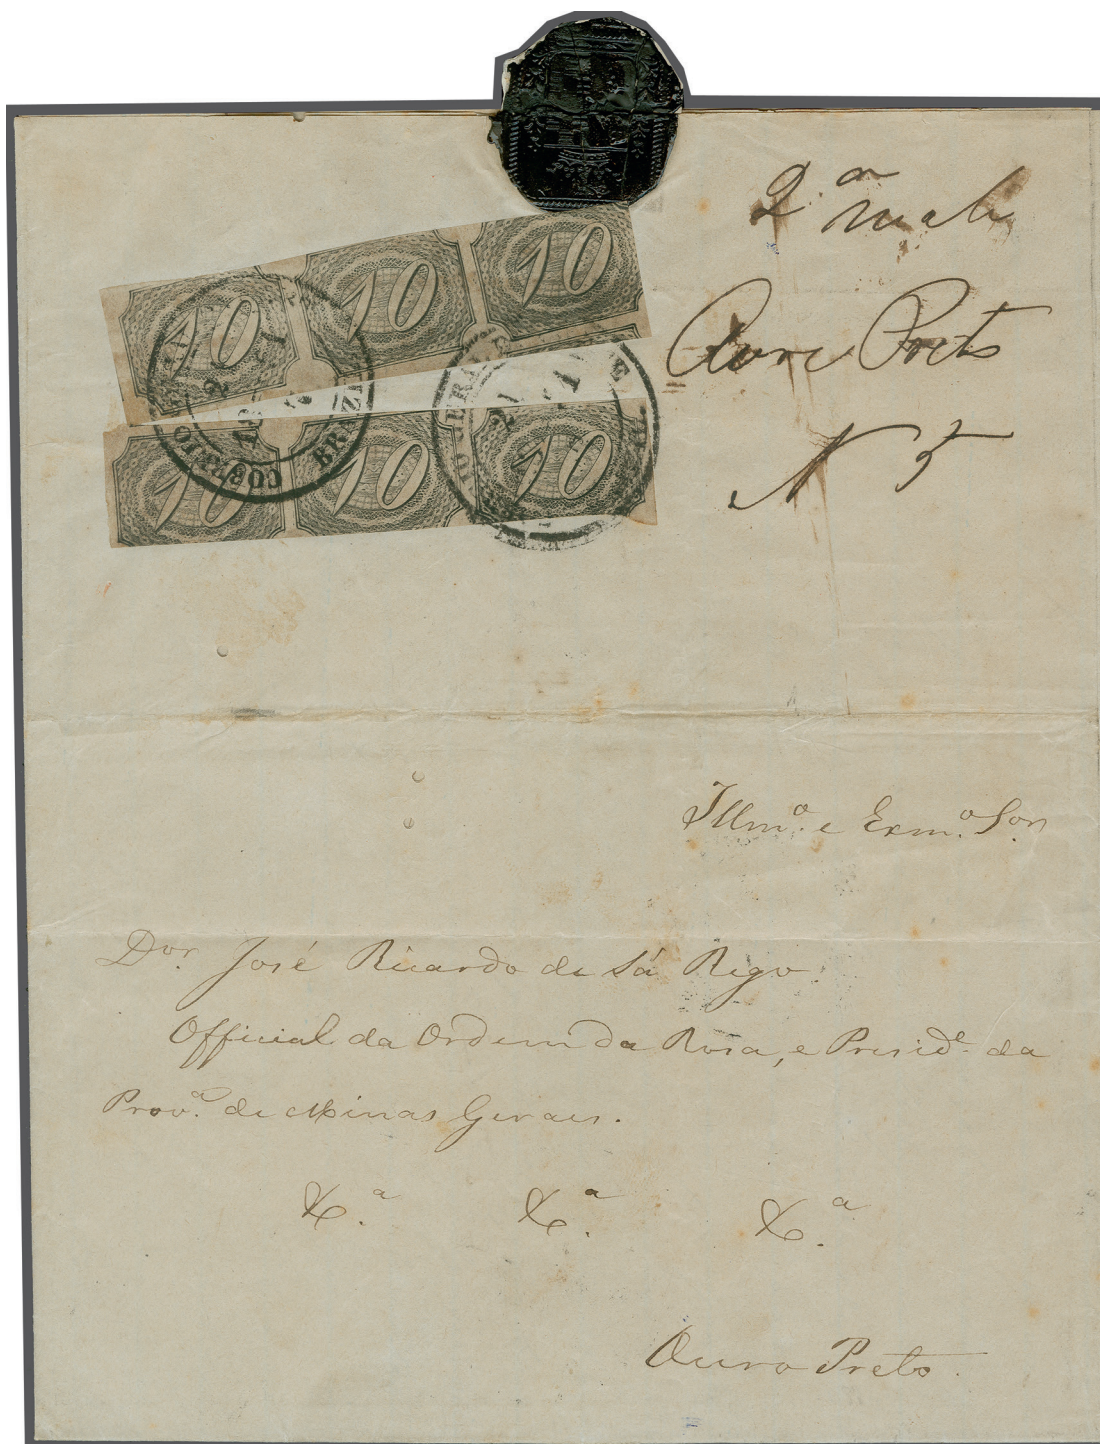 2.ª mala
10 10 10
Ouro Preto
10 10 10
CORREIO BRAZI
N 5
Illm.º e Exm.º Sor.
Dor. José Ricardo de Sá Rego
Official da Ordem da Rosa, e Presid.e da
Prov.ª de Minas Geraes.
&.ª &.ª &.ª
Ouro Preto.